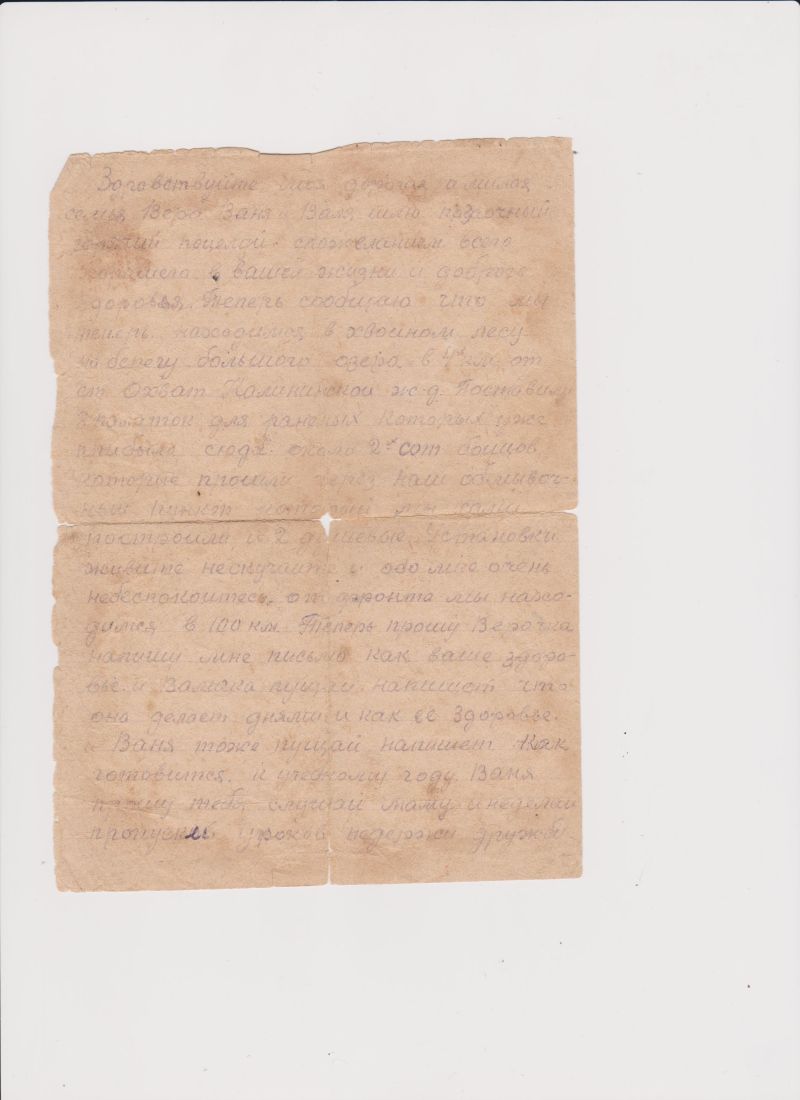 Здравствуйте моя дорогая и милая
семья Вера Ваня и Валя шлю
горячий поцелой с пожеланием всего
хорошего в вашей жизни и доброго
здоровья. Теперь сообщаю что мы
теперь находимся в хвойном лесу
на берегу большого озера в 4х км от
ст Охват Калининской ж-д. Поставили
палаток для раненых которых уже
прибыло сюда около 2х сот бойцов
которые прошли через наш обмывоч-
ный пункт который мы сами
построили и 2 душевые установки
живите нескучайте и обо мне очень
небеспокойтесь, от фронта мы нахо-
димся в 100 км. Теперь прошу Верочка
напиши мне письмо как ваше здоро-
вье. и Валичка пущай напишет что
она делает днями и как ее здоровье.
и Ваня тоже пущай напишет как
готовится к учебному году Ваня
прошу тебя случай маму и неделай
пропуск уроков недержи дружбы